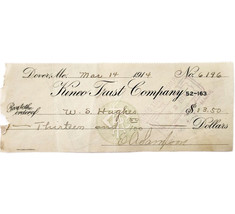 Dover, Mar 14 1914 No. 6196
Kinco Trust Company 52-163
Pay to the order of W. E. Hughes $13.50
Thirteen and Dollars